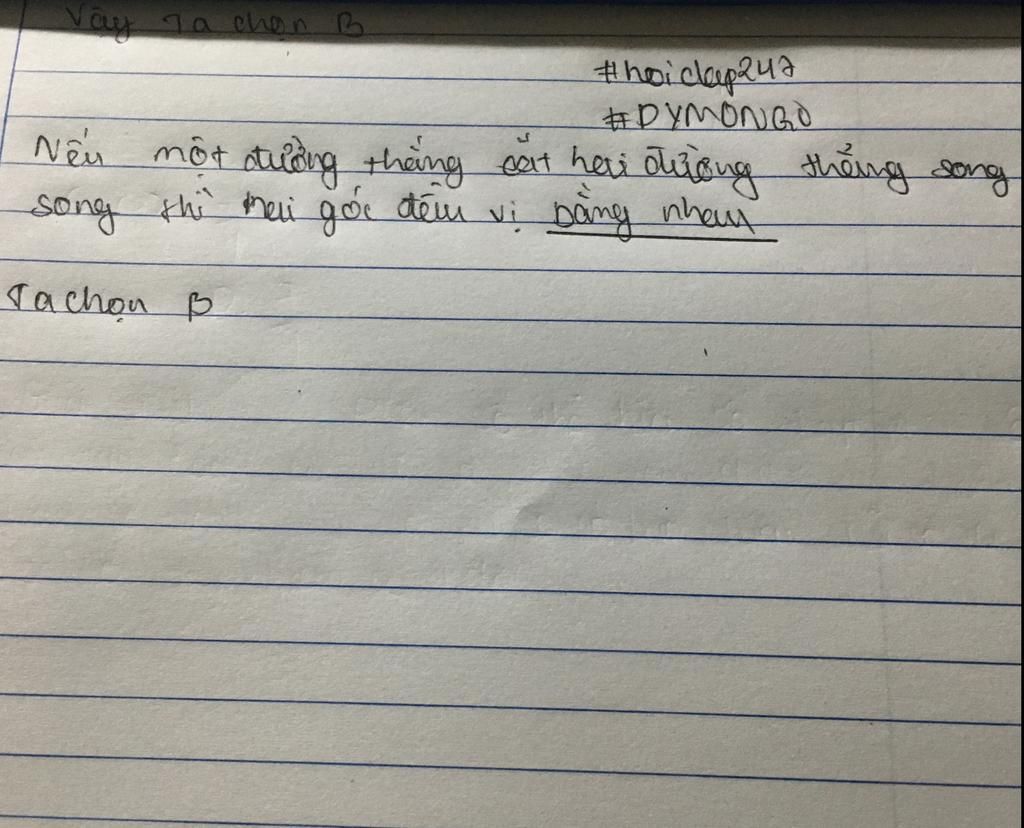 Vậy Ta chọn B
#hoidap247
#DYMONGO
Nếu một đường thẳng cắt hai đường thẳng song
song thì hai góc đồng vị bằng nhau
Ta chọn B